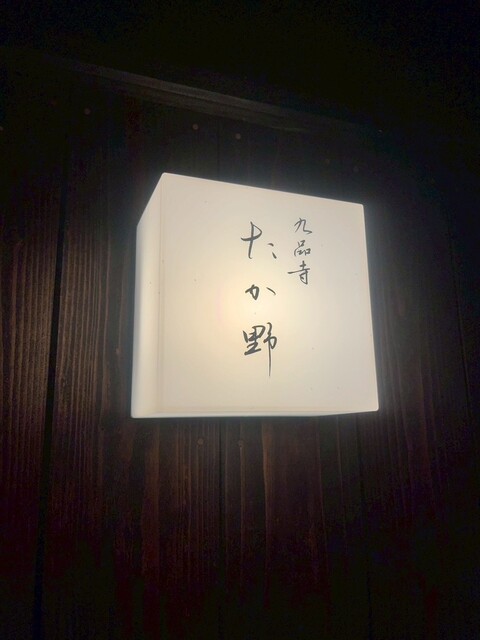 九品寺
たか野